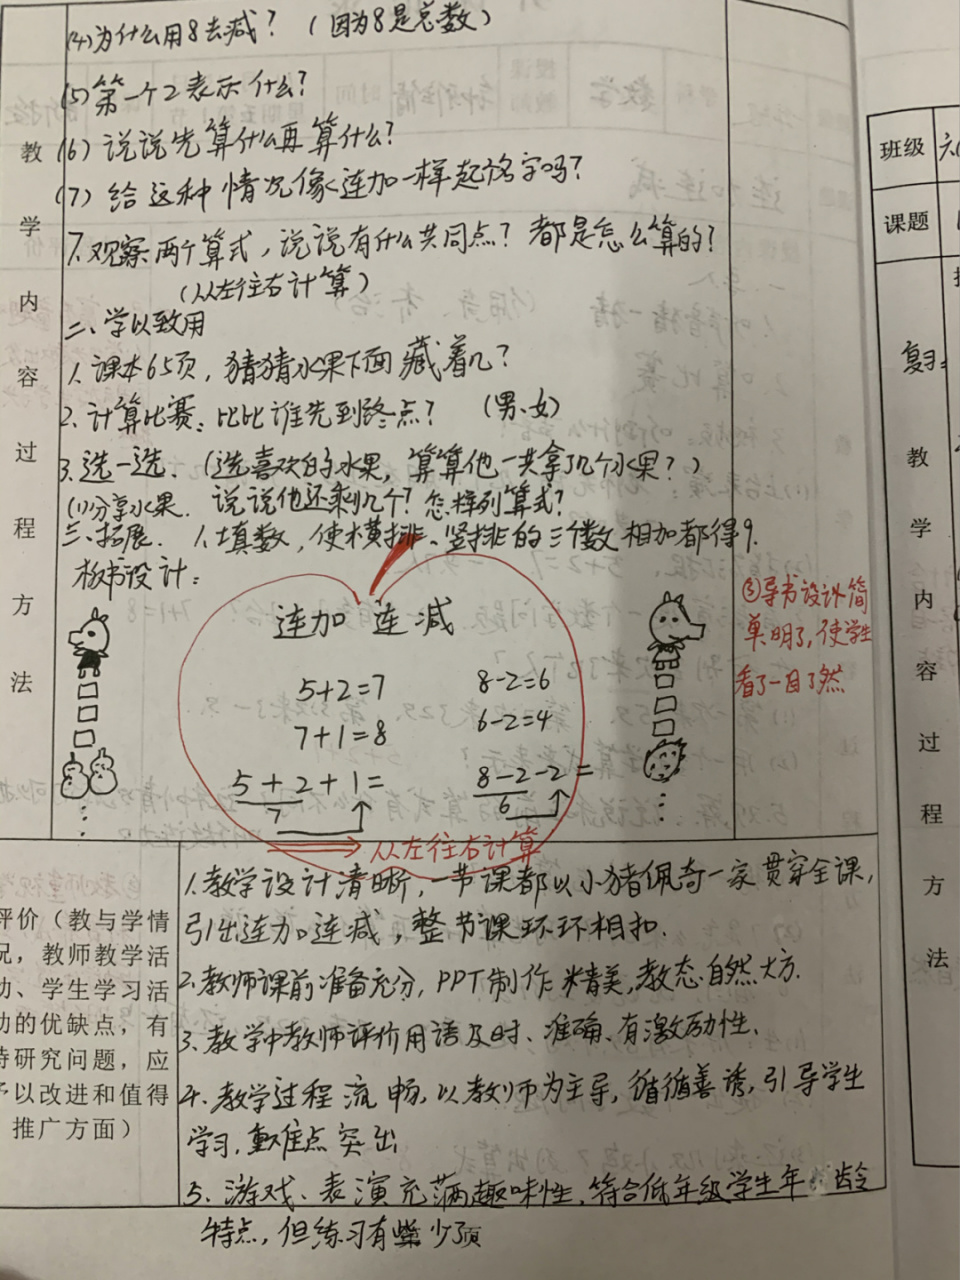 (4)为什么用8去减？（因为8是总数）
(5)第一个2表示什么？
(6)说说先算什么再算什么？
(7)给这种情况像连加一样起名字吗？
7.观察两个算式，说说有什么共同点？都是怎么算的？
（从左往右计算）
二、学以致用
1.课本65页，猜猜水果下面藏着几？
2.计算比赛：比比谁先到终点？（男、女）
3.选一选.（选喜欢的水果，算算他一共拿了几个水果？）
(1)分享水果. 说说他还剩几个？怎样列算式？
三、拓展. 1.填数，使横排、竖排的三个数相加都得9.
板书设计：
连加 连减
5+2=7 8-2=6
7+1=8 6-2=4
5+2+1= 8-2-2=
7 6
从左往右计算
③导书设计简
单明了，使学生
看了一目了然
教学内容过程方法
评价（教与学情
况，教师教学活
动、学生学习活
动的优缺点，有
待研究问题，应
予以改进和值得
推广方面）
1.教学设计清晰，一节课都以小猪佩奇一家贯穿全课，
引出连加连减，整节课环环相扣.
2.教师课前准备充分，PPT制作精美，教态自然大方.
3.教学中教师评价用语及时、准确、有激励性.
4.教学过程流畅，以教师为主导，循循善诱，引导学生
学习，重难点突出
5.游戏、表演充满趣味性，符合低年级学生年龄
特点，但练习有些少了
班级
课题
复习：
教学内容过程方法